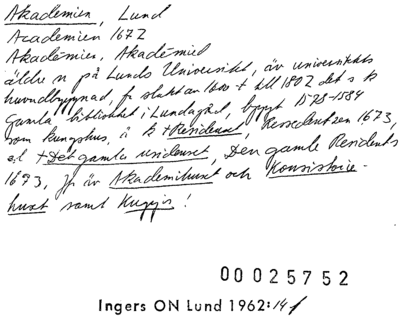 Akademien, Lund
Academien 1672
Akadémien, Akadémied
äldre n på Lunds Universitet, äv universitets
huvudbyggnad, fr slutet av 1600 t till 1802 det s k
Gamla biblioteket i Lundagård, byggt 1578-1584
som kungshus, i Residentzen 1673,
el Det gamla residenset, Den gamle Residents
1693, Jfr äv Akademihuset och Konsistorie-
huset samt !
00025752
Ingers ON Lund 1962:14